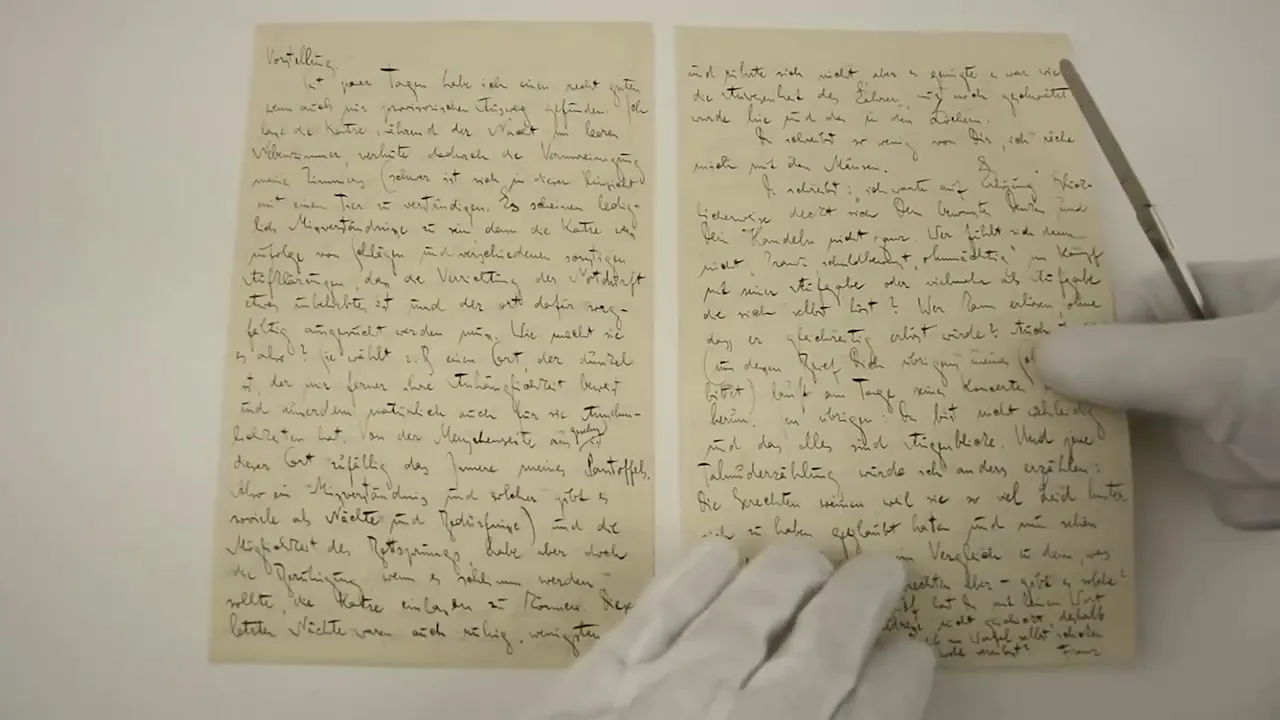 Vorstellung.
Seit paar Tagen habe ich einen recht guten
wenn auch nur provisorischen Ausweg gefunden. Ich
lasse die Katze während der Nacht im leeren
Nebenzimmer, verhüte dadurch die Verunreinigung
meines Zimmers (schwer ist sich in dieser Hinsicht
mit einem Tier zu verständigen. Es scheinen ledig-
lich Misverständnisse zu sein denn die Katze weiß
infolge von Schlägen und verschiedenen sonstigen
Aufklärungen, das die Verrichtung der Notdurft
etwas unbeliebtes ist und der Ort dafür sorg-
fältig ausgesucht werden muß. Wie macht sie
es also? Sie wählt z. B einen Ort, der dunkel
ist, der mir ferner ihre Anhänglichkeit beweist
und auserdem natürlich auch für sie Annehm-
lichkeiten hat. Von der Menschenseite aus gesehn ist
dieser Ort zufällig das Innere meines Pantoffels.
Also ein Misverständnis und solcher gibt es
soviele als Nächte und Bedürfnisse) und die
Möglichkeit des Bettsprungs, habe aber doch
die Beruhigung wenn es schlimm werden
sollte, die Katze einlassen zu können. Diese
letzten Nächte waren auch ruhig, wenigstens
und rührte sich nicht, aber es genügte es war wie
die Anwesenheit des Lehrers,
wurde hie und da in den Löchern.
Du schreibst so wenig von Dir, ich räche
mich mit den Mäusen.
Du schreibst: ich warte auf Erlösung. Glück-
licherweise deckt sich Dein bewußtes Denken und
Dein Handeln nicht ganz. Wer fühlt sich denn
nicht "krank schuldbewußt, ohnmächtig" im Kampf
mit seiner Aufgabe oder vielmehr als Aufgabe
die sich selbst löst? Wer kann erlösen, ohne
dass er gleichzeitig erlöst würde? Auch
(um dessen Brief Dich übrigens meine
bittet) läuft am Tage seines Koncertes
herum. Im übrigen: Du bist nicht wehleidig
und das alles sind Augenblicke. Und jene
Talmuderzählung würde ich anders erzählen:
Die Gerechten weinen weil sie so viel Leid hinter
sich zu haben geglaubt hatten und nun sehen
im Vergleich zu dem, was
aber – gibt es solche?
hat Du mit keinem Wort
nicht deshalb
selbst
Franz